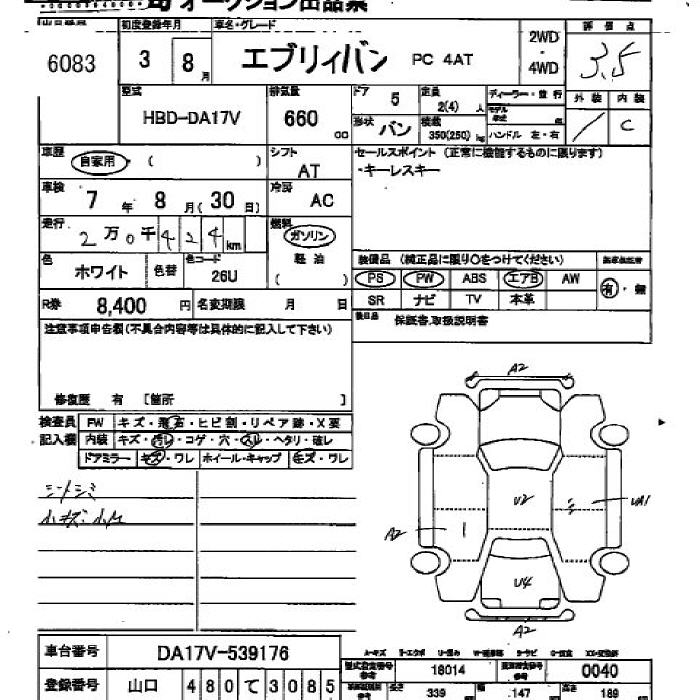 オークション出品票
初度登録年月 車名・グレード 評価点
6083 3 8月 エブリィバン PC 4AT 2WD・4WD 3.5
型式 排気量 ドア 定員 ディーラー・並行 外装 内装
HBD-DA17V 660 cc 5 2(4)人 モデル年式
形状 バン 積載 350(250)kg ハンドル 左・右 / C
車歴 自家用 ( ) シフト AT セールスポイント (正常に機能するものに限ります)
・キーレスキー
車検 7年 8月(30日) 冷房 AC
走行 2万0千424km 燃料 ガソリン 軽油 ( )
色 ホワイト 色替 色コード 26U
装備品 (純正品に限り○をつけてください)
PS PW ABS エアB AW 有・無
SR ナビ TV 本革
R券 8,400円 名変期限 月 日
後日品 保証書,取扱説明書
注意事項申告欄(不具合内容等は具体的に記入して下さい)
修復歴 有 [箇所 ]
検査員記入欄 FW キズ・飛石・ヒビ割・リペア跡・X要
内装 キズ・汚レ・コゲ・穴・スレ・ヘタリ・破レ
ドアミラー キズ・ワレ ホイール・キャップ キズ・ワレ
シートシミ
小キズ・小凹
A2
U2
UA1
A2
U4
A2
A-キズ
車台番号 DA17V-539176
型式指定番号 参考 18014 類別区分番号 参考 0040
登録番号 山口 480て3085
長さ 339 幅 147 高さ 189